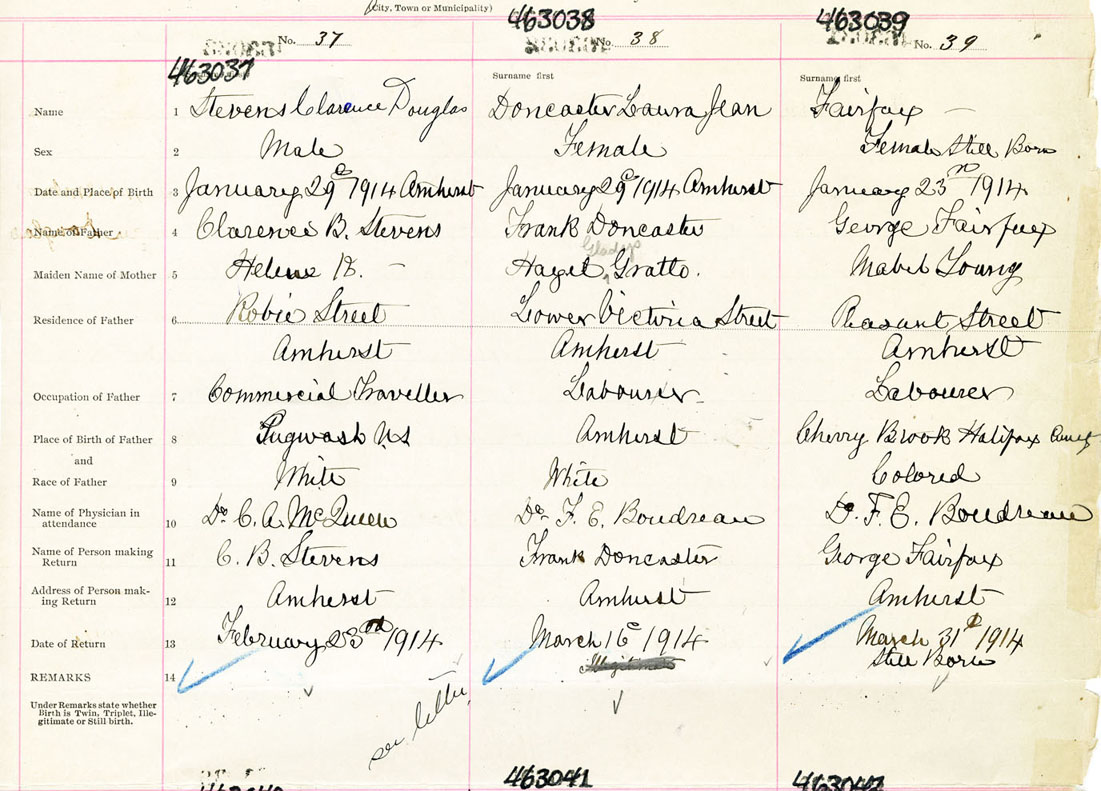 (City, Town or Municipality)
463038 463039
No. 37 No. 38 No. 39
463037
Surname first Surname first
Name 1 Stevens Clarence Douglas Doncaster Laura Jean Fairfax —
Sex 2 Male Female Female Still Born
Date and Place of Birth 3 January 29th 1914 Amherst January 29th 1914 Amherst January 23rd 1914
Name of Father 4 Clarence B. Stevens Frank Doncaster George Fairfax
Gladys
Maiden Name of Mother 5 Helene B. — Hazel Gratto. Mabel Young
Residence of Father 6 Robie Street Lower Victoria Street Pleasant Street
Amherst Amherst Amherst
Occupation of Father 7 Commercial Traveller Labourer Labourer
Place of Birth of Father 8 Pugwash NS Amherst Cherry Brook Halifax County
and
Race of Father 9 White White Colored
Name of Physician in
attendance 10 Dr C. A. McQueen Dr F. E. Boudreau Dr. F. E. Boudreau
Name of Person making
Return 11 C. B. Stevens Frank Doncaster George Fairfax
Address of Person mak-
ing Return 12 Amherst Amherst Amherst
Date of Return 13 February 23rd 1914 March 16th 1914 March 31st 1914
Illegitimate Still Born
REMARKS 14
Under Remarks state whether
Birth is Twin, Triplet, Ille-
gitimate or Still birth.
see letter
463041 463042